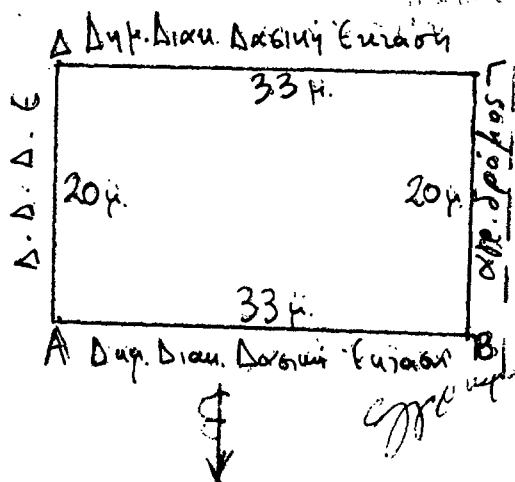 Δ Δημ. Διακ. Δασική Έκταση
33 μ.
Δ. Δ. Δ. Ε
20 μ.
20 μ.
αγρ. δρόμος
Γ
33 μ.
Α Δημ. Διακ. Δασική Έκταση Β